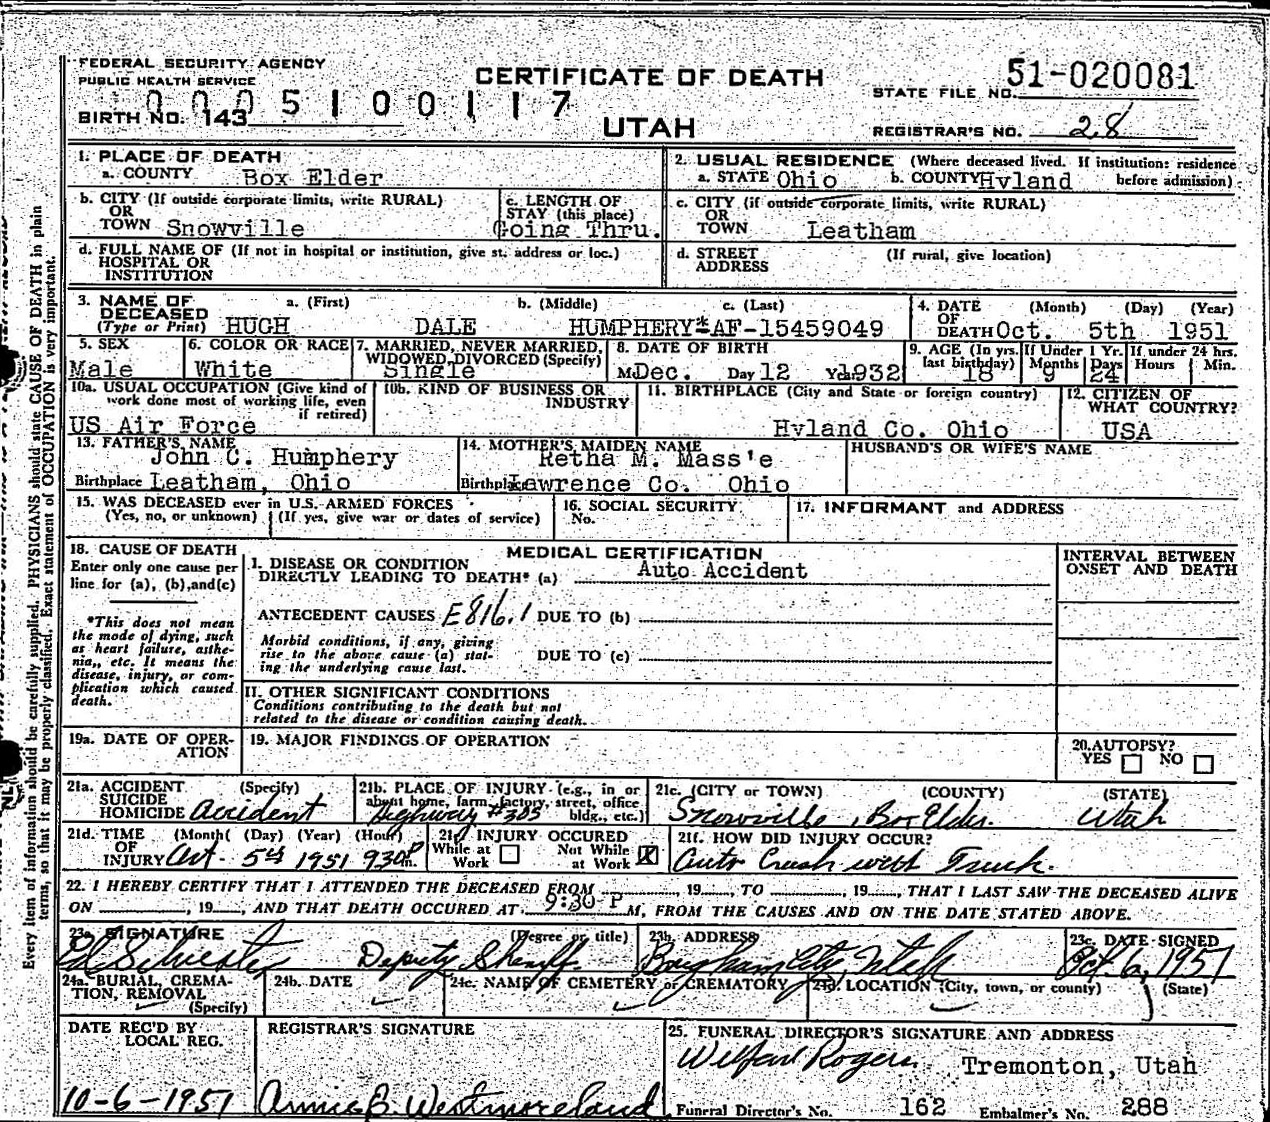 FEDERAL SECURITY AGENCY
PUBLIC HEALTH SERVICE
CERTIFICATE OF DEATH
51-020081
STATE FILE NO.
0005100117
BIRTH NO. 143
UTAH
REGISTRAR'S NO. 28
1. PLACE OF DEATH
a. COUNTY Box Elder
2. USUAL RESIDENCE (Where deceased lived. If institution: residence before admission)
a. STATE Ohio b. COUNTY Hvland
b. CITY (If outside corporate limits, write RURAL)
OR
TOWN Snowville
c. LENGTH OF
STAY (this place)
Going Thru.
c. CITY (if outside corporate limits, write RURAL)
OR
TOWN Leatham
d. FULL NAME OF (If not in hospital or institution, give st. address or loc.)
HOSPITAL OR
INSTITUTION
d. STREET (If rural, give location)
ADDRESS
3. NAME OF a. (First) b. (Middle) c. (Last)
DECEASED
(Type or Print) HUGH DALE HUMPHERY*AF-15459049
4. DATE (Month) (Day) (Year)
OF
DEATH Oct. 5th 1951
5. SEX
Male
6. COLOR OR RACE
White
7. MARRIED, NEVER MARRIED,
WIDOWED, DIVORCED (Specify)
Single
8. DATE OF BIRTH
Mo Dec. Day 12 Yr 1932
9. AGE (In yrs. last birthday) 18
If Under 1 Yr. Months 9 Days 24
If under 24 hrs. Hours Min.
10a. USUAL OCCUPATION (Give kind of work done most of working life, even if retired)
US Air Force
10b. KIND OF BUSINESS OR INDUSTRY
11. BIRTHPLACE (City and State or foreign country)
Hvland Co. Ohio
12. CITIZEN OF WHAT COUNTRY?
USA
13. FATHER'S NAME
John C. Humphery
Birthplace Leatham, Ohio
14. MOTHER'S MAIDEN NAME
Retha M. Mass'e
Birthplace Lawrence Co. Ohio
HUSBAND'S OR WIFE'S NAME
15. WAS DECEASED ever in U.S. ARMED FORCES
(Yes, no, or unknown) (If yes, give war or dates of service)
16. SOCIAL SECURITY
No.
17. INFORMANT and ADDRESS
18. CAUSE OF DEATH
Enter only one cause per line for (a), (b), and (c)
*This does not mean the mode of dying, such as heart failure, asthenia, etc. It means the disease, injury, or complication which caused death.
MEDICAL CERTIFICATION
I. DISEASE OR CONDITION
DIRECTLY LEADING TO DEATH* (a) Auto Accident
ANTECEDENT CAUSES E816.1 DUE TO (b)
Morbid conditions, if any, giving rise to the above cause (a) stating the underlying cause last.
DUE TO (c)
II. OTHER SIGNIFICANT CONDITIONS
Conditions contributing to the death but not
related to the disease or condition causing death.
INTERVAL BETWEEN
ONSET AND DEATH
19a. DATE OF OPERATION
19. MAJOR FINDINGS OF OPERATION
20. AUTOPSY?
YES NO
21a. ACCIDENT (Specify)
SUICIDE
HOMICIDE Accident
21b. PLACE OF INJURY (e.g., in or about home, farm, factory, street, office bldg., etc.)
Highway #305
21c. (CITY or TOWN) (COUNTY) (STATE)
Snowville, Box Elder. Utah
21d. TIME (Month) (Day) (Year) (Hour)
OF
INJURY Oct. 5th 1951 930P m.
21e. INJURY OCCURED
While at Work Not While at Work X
21f. HOW DID INJURY OCCUR?
Auto Crash with Truck.
22. I HEREBY CERTIFY THAT I ATTENDED THE DECEASED FROM , 19 , TO , 19 , THAT I LAST SAW THE DECEASED ALIVE
ON , 19 , AND THAT DEATH OCCURED AT 9:30 P M, FROM THE CAUSES AND ON THE DATE STATED ABOVE.
23a. SIGNATURE (Degree or title)
Silvester Deputy Sheriff
23b. ADDRESS
Brigham City, Utah
23c. DATE SIGNED
Oct. 6, 1951
24a. BURIAL, CREMATION, REMOVAL (Specify)
24b. DATE
24c. NAME OF CEMETERY or CREMATORY
24d. LOCATION (City, town, or county) (State)
DATE REC'D BY LOCAL REG.
10-6-1951
REGISTRAR'S SIGNATURE
Annie B. Westmoreland
25. FUNERAL DIRECTOR'S SIGNATURE AND ADDRESS
Rogers Tremonton, Utah
Funeral Director's No. 162 Embalmer's No. 288
Every item of information should be carefully supplied. PHYSICIANS should state CAUSE OF DEATH in plain
terms, so that it may be properly classified. Exact statement of OCCUPATION is very important.